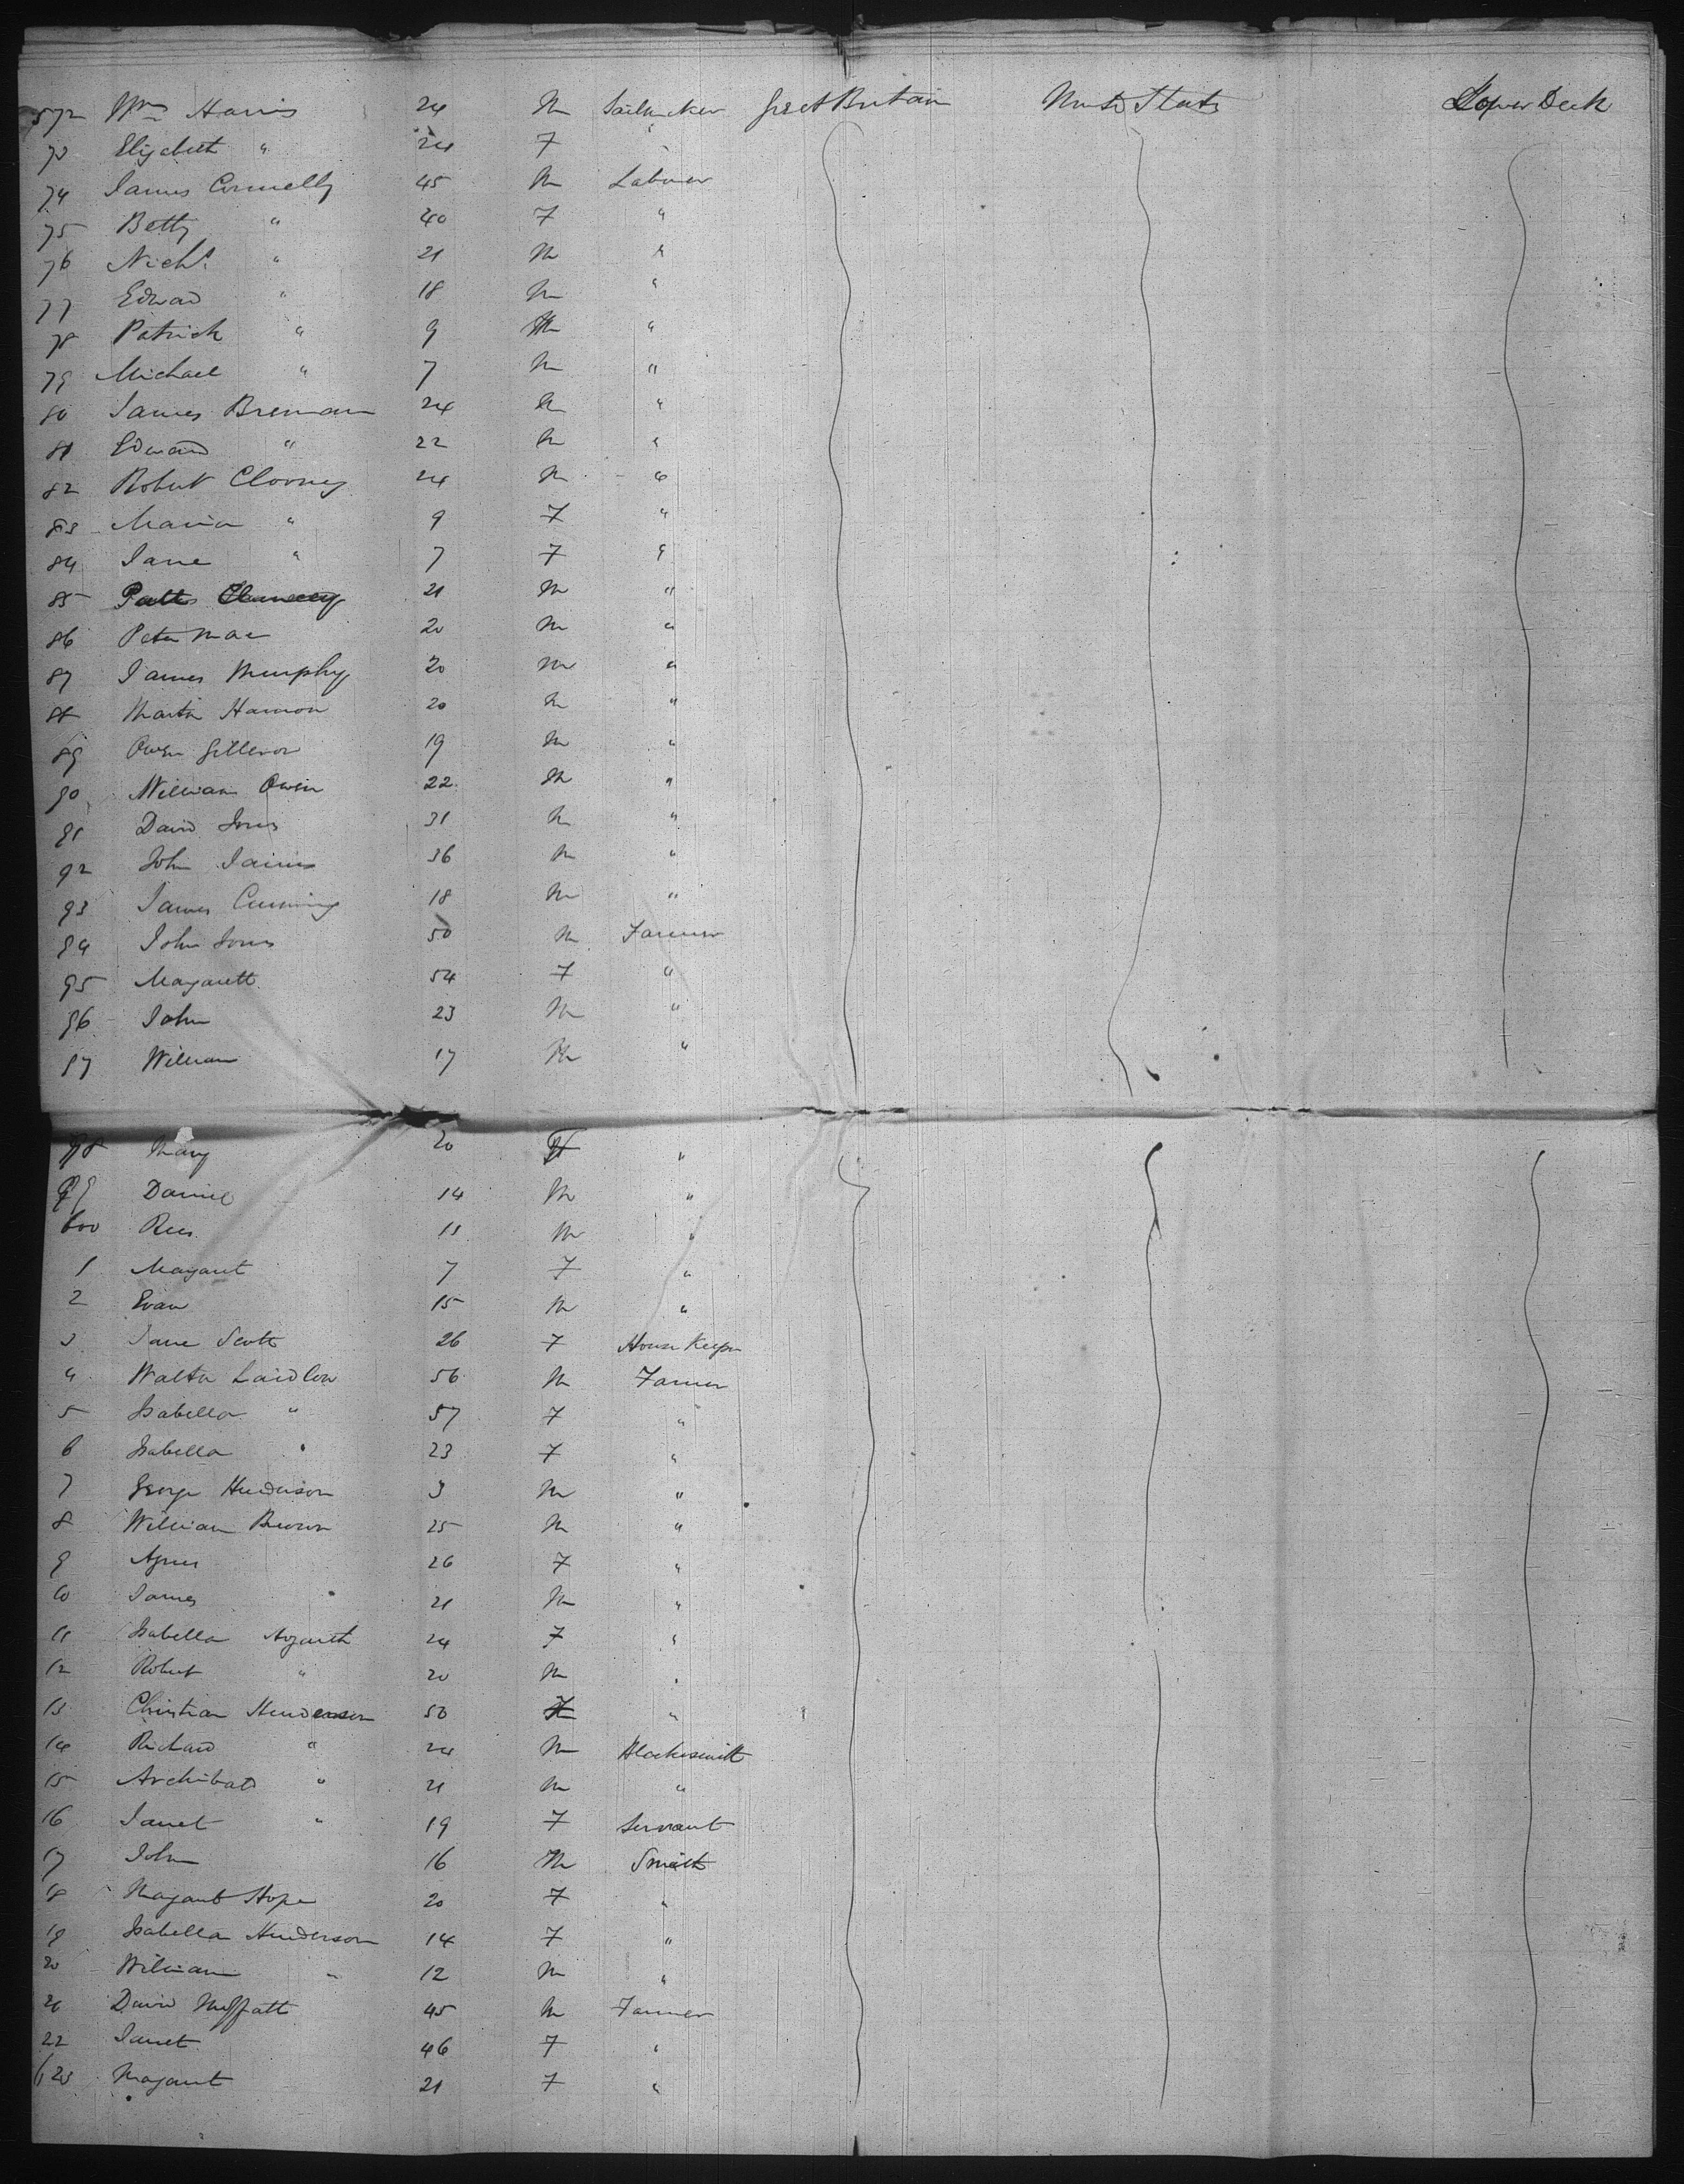 572 Wm Harris 24 M Sailmaker Great Britain United States Lower Deck
73 Elizabeth " 24 F "
74 James Connelly 45 M Laborer
75 Betty " 40 F "
76 Nichs " 21 M "
77 Edward " 18 M "
78 Patrick " 9 M "
79 Michael " 7 M "
80 James Brennan 24 M "
81 Edward " 22 M "
82 Robert Clooney 24 M "
83 Maria " 9 F "
84 Jane " 7 F "
85 21 M "
86 Peter Mae 20 M "
87 James Murphy 20 M "
88 Martin Hannon 20 M "
89 Owen 19 M "
90 William Owen 22 M "
91 David Jones 31 M "
92 John James 36 M "
93 James Cumming 18 M "
94 John Jones 50 M Farmer
95 Magarett 54 F "
96 John 23 M "
97 William 17 M "
98 Mary 20 F "
99 Daniel 14 M "
600 Rees 11 M "
1 Magaret 7 F "
2 Evan 15 M "
3 Jane Scott 26 F House Keeper
4 Walter Laidlow 56 M Farmer
5 Isabella " 57 F "
6 Isabella " 23 F "
7 George Henderson 3 M "
8 William Brown 25 M "
9 Agnes 26 F "
10 James 21 M "
11 Isabella 24 F "
12 Robert " 20 M "
13 Christian Henderson 50 F "
14 Richard " 24 M Blacksmith
15 Archibald " 21 M "
16 Janet " 19 F Servant
17 John 16 M Smith
18 Magaret Hope 20 F "
19 Isabella Henderson 14 F "
20 William " 12 M "
21 David Moffatt 45 M Farmer
22 Janet 46 F "
623 Magaret 21 F "